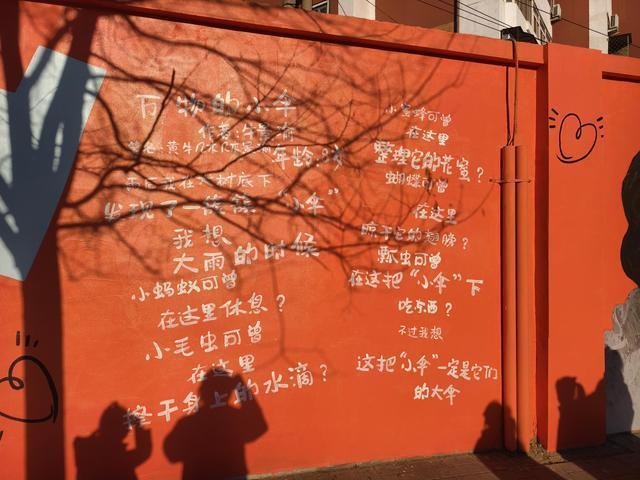 万物的小伞
作者：牛
年龄：8岁
发现了一
"小伞"
我想
大雨的时候
小蚂蚁可曾
在这里休息？
小毛虫可曾
在这里
擦干身上的水滴？
小蜜蜂可曾
在这里
整理它的花蜜？
蝴蝶可曾
在这里
晾干它的翅膀？
瓢虫可曾
在这把"小伞"下
吃东西？
不过我想
这把"小伞"一定是它们
的大伞